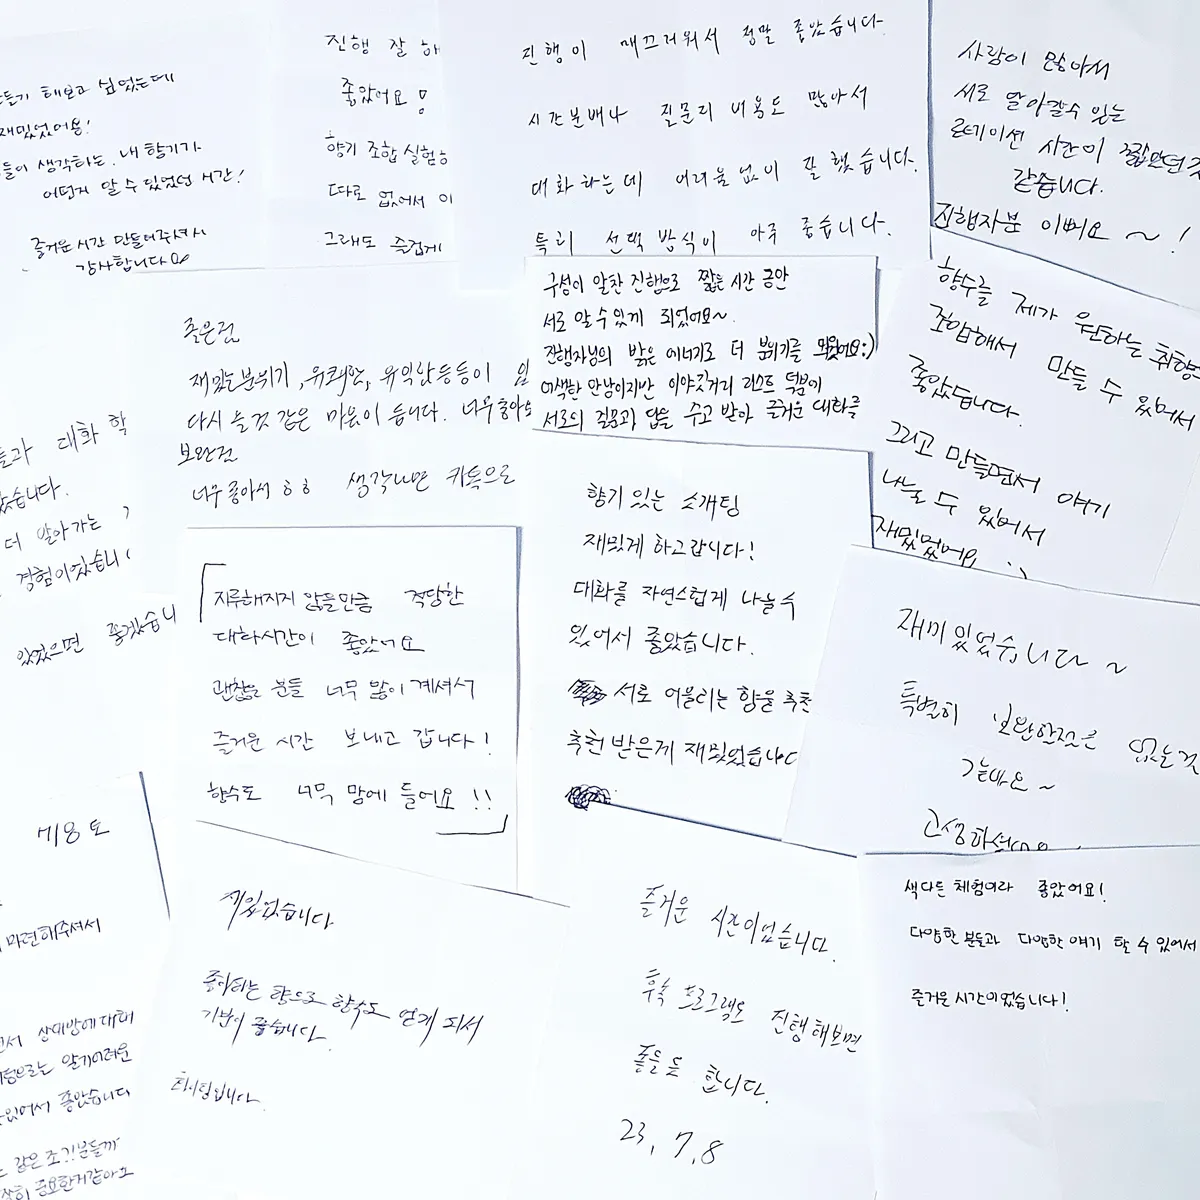 해보고 싶었는데
재밌었어용!
생각하는 내 향기가
어떤지 알 수 있었던 시간!
즐거운 시간 만들어주셔서
감사합니다
진행 잘 해
좋았어요!
향기 조합 실험
따로 없어서
그래도 즐겁게
진행이 매끄러워서 정말 좋았습니다.
시간분배나 질문리 내용도 많아서
대화하는데 어려움없이 잘 했습니다.
특히 선택 방식이 아주 좋습니다.
사람이 많아서
서로 알아갈수 있는
로테이션 시간이 짧았던것
같습니다.
진행자분 이뻐요 ~!
구성이 알찬 진행으로 짧은 시간 동안
서로 알 수 있게 되었어요~
진행자님의 밝은 에너지로 더 분위기를
어색한 만남이지만 이야깃거리 리스트 덕분에
서로의 질문과 답을 주고 받아 즐거운 대화를
향수를 제가 원하는 취향
조합해서 만들 수 있어서
좋았습니다.
그리고 만들면서 얘기
나눌 수 있어서
재밌었어요 :)
좋은점
재밌는분위기, 유쾌함, 유익함등등이
다시 올것 같은 마음이 듭니다. 너무좋아요
보완점
너무 좋아서 ㅎㅎ 생각나면 카톡으로
대화
습니다.
더 알아가는
경험이었습니
있었으면 좋겠습니
지루해지지 않을만큼 적당한
대화시간이 좋았어요
괜찮은 분들 너무 많이 계셔서
즐거운 시간 보내고 갑니다!
향수도 너무 맘에 들어요 !!
향기 있는 소개팅
재밌게 하고갑니다!
대화를 자연스럽게 나눌수
있어서 좋았습니다.
서로 어울리는 향을 추천
추천 받은게 재밌었습니다
재미있었습니다 ~
특별히 보완할점은 없는것
같아요~
고생하셨
마련해주셔서
상대방에 대해
알기어려운
있어서 좋았습니다
같은 조
중요한거같아요
재밌었습니다
좋아하는 향으로 향수도 얻게 되서
기분이 좋습니다.
화이팅입니다.
즐거운 시간이었습니다.
후속 프로그램도 진행해보면
좋을듯 합니다.
23. 7. 8
색다른 체험이라 좋았어요!
다양한 분들과 다양한 얘기 할 수 있어서
즐거운 시간이었습니다!